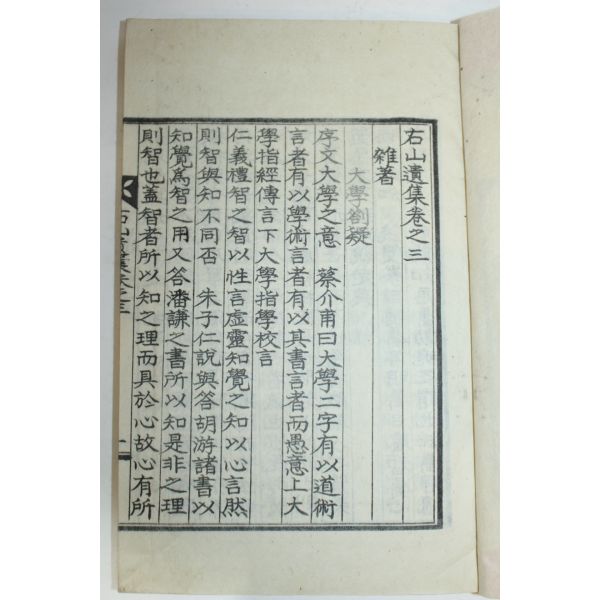 右山遺集卷之三
雜著
大學劄疑
序文大學之意 蔡介甫曰大學二字有以道術
言者有以學術言者有以其書言者而愚意上大
學指經傳言下大學指學校言
仁義禮智之智以性言虛靈知覺之知以心言然
則智與知不同否 朱子仁說與答胡游諸書以
知覺爲智之用又答潘謙之書所以知是非之理
則智也蓋智者所以知之理而具於心故心有所
右山遺集卷之三
一